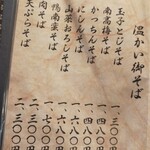 温かい御そば
玉子とじそば 一、三〇〇円
南高梅そば 一、四〇〇
かっちんそば 一、四八〇
にしんそば 一、六八〇
山菜おろしそば 一、六八〇
鴨南蛮そば 一、七〇〇
肉そば 二、〇〇〇
天ぷらそば 二、三〇〇円